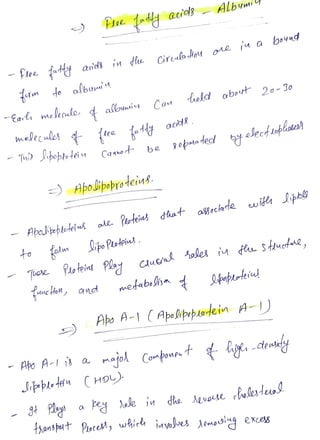 =) Free fatty acids - Albumin
- Free fatty acids in the Circulation are in a bound
form to albumin
- Each molecule of albumin Can hold about 20-30
molecules of free fatty acids.
- This lipoprotein Cannot be seperated by electrophoresis
=) Apolipoproteins.
- Apolipoproteins are Proteins that associate with lipids
to form lipoproteins.
- These Proteins Play Crucial roles in the structure,
function, and metabolism of lipoproteins
=) Apo A-1 (Apolipoprotein A-1)
- Apo A-1 is a major Component of high-density
lipoprotein (HDL).
- It Plays a key role in the reverse cholesterol
transport Process, which involves removing excess